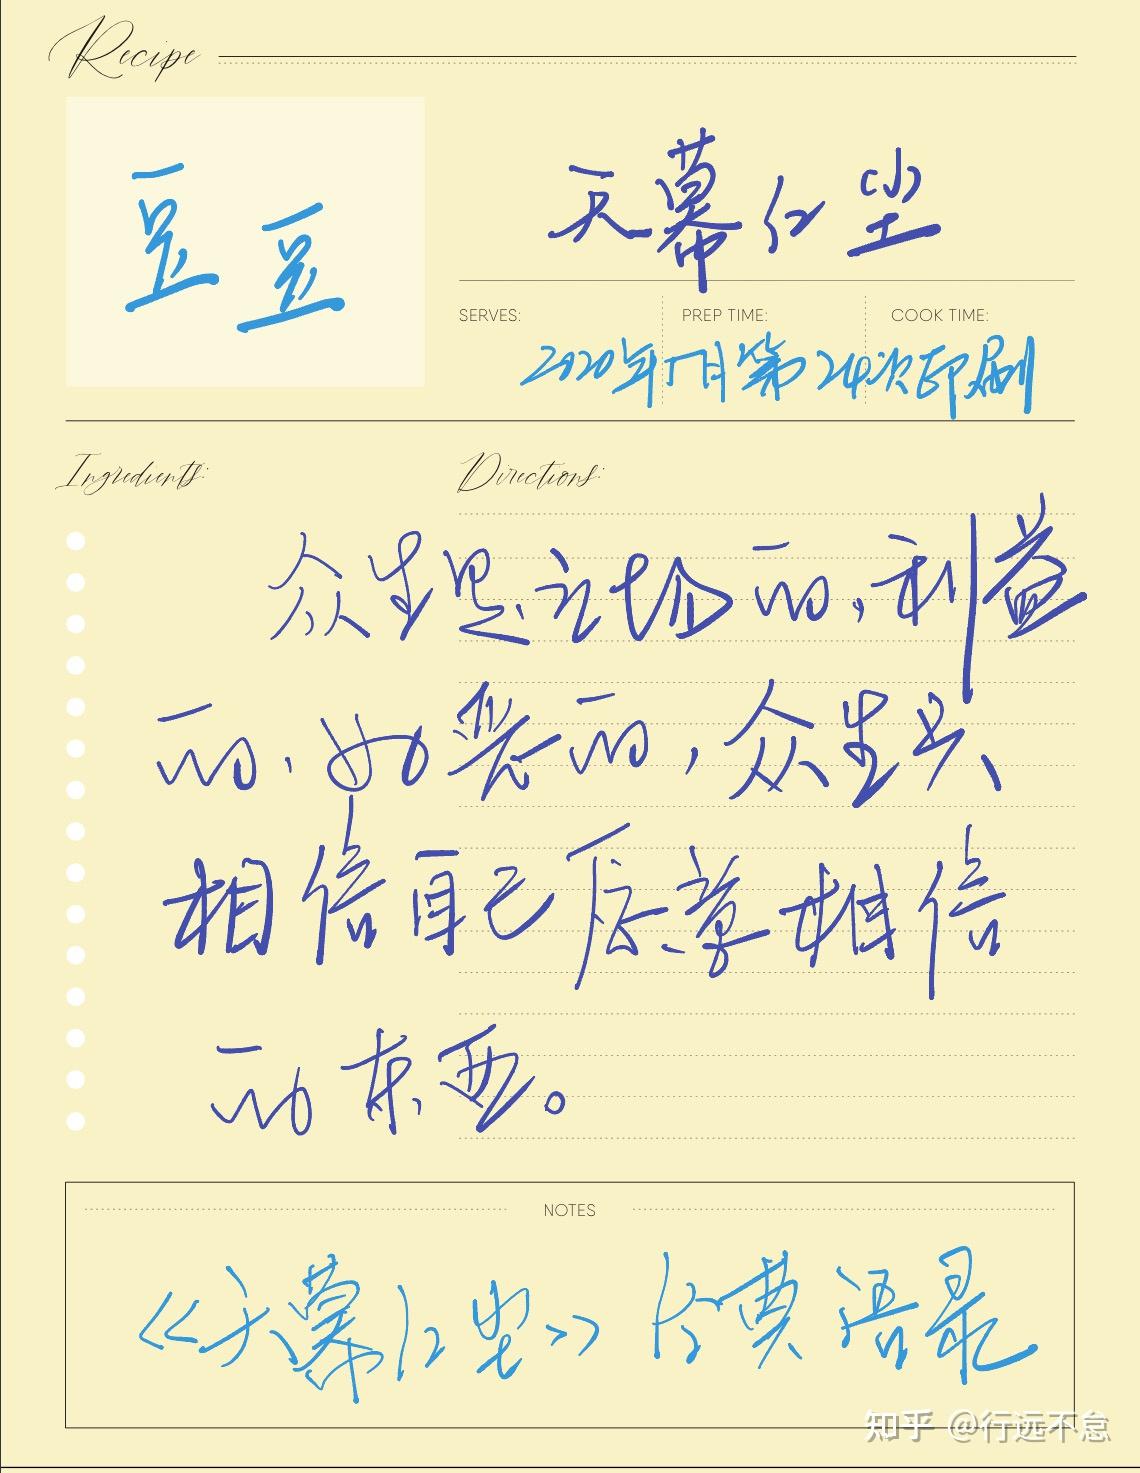 Recipe
豆豆
天幕红尘
SERVES:
PREP TIME:
COOK TIME:
2020年7月第24次印刷
Ingredients:
Directions:
众生是立场的,利益
的,的,众生只
相信自己愿意相信
的东西。
NOTES
《天幕红尘》经典语录
知乎 @行远不怠